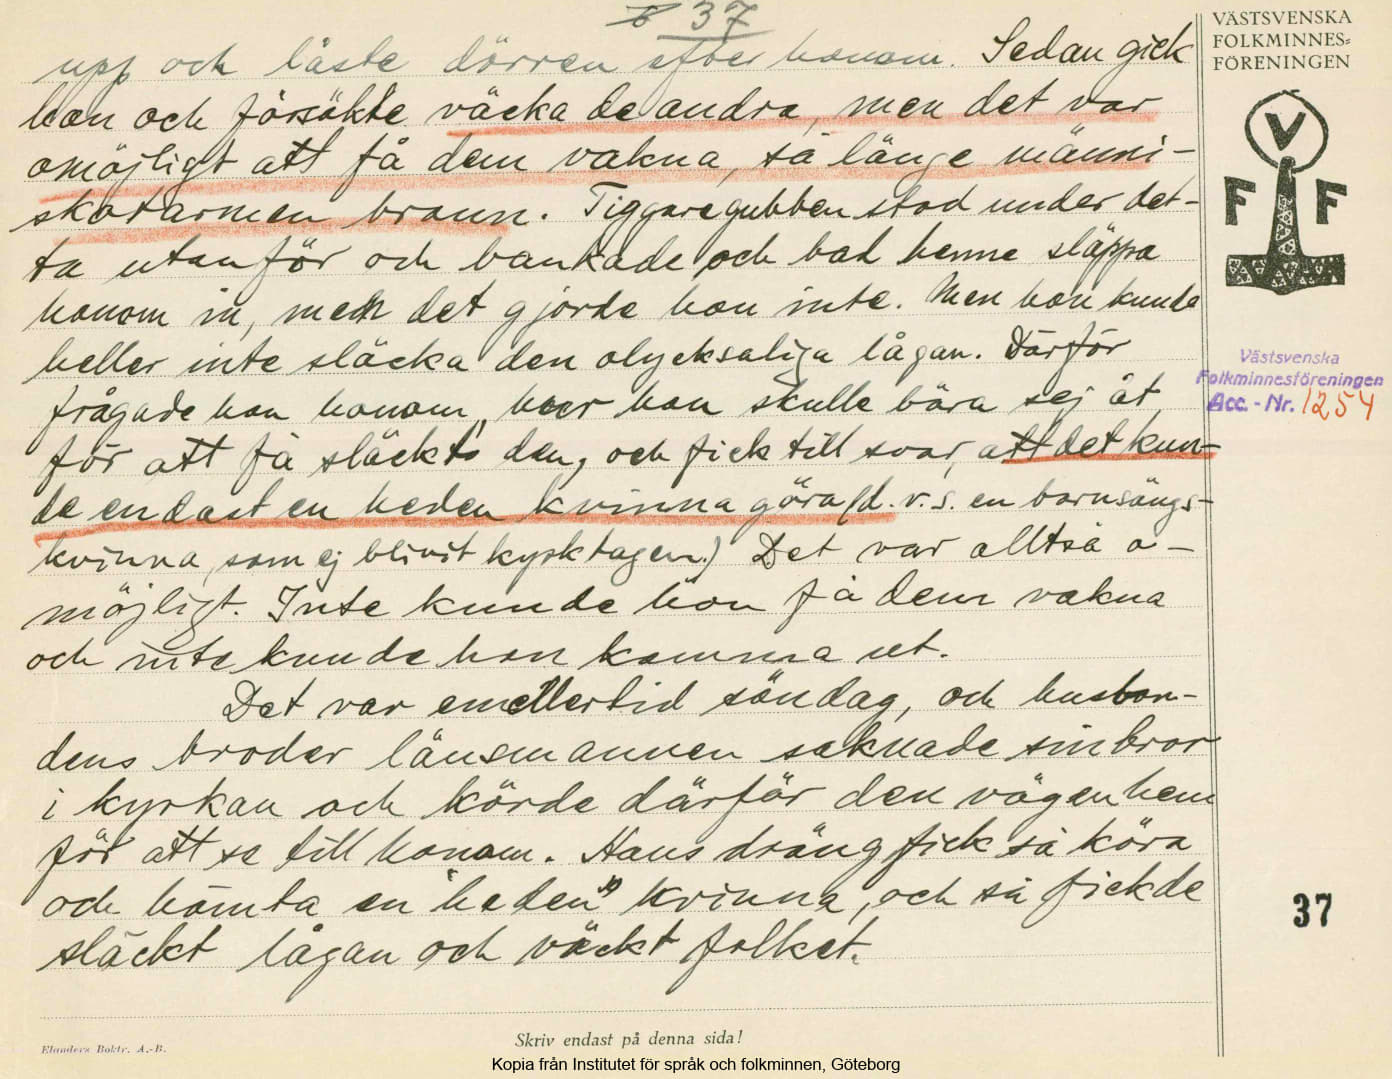 37
VÄSTSVENSKA
FOLKMINNES-
FÖRENINGEN
upp och låste dörren efter honom. Sedan gick
hon och försökte väcka de andra, men det var
omöjligt att få dem vakna, så länge männi-
skoarmen brann. Tiggaregubben stod under det-
ta utanför och bankade och bad henne släppa
honom in, men det gjorde hon inte. Men hon kunde
heller inte släcka den olycksaliga lågan. Därför
frågade hon honom, hur hon skulle bära sej åt,
för att få släckt den, och fick till svar, att det kun-
de endast en heden kvinna göra (d.v.s. en barnsängs-
kvinna, som ej blivit kyrktagen.) Det var alltså o-
möjligt. Inte kunde hon få dem vakna
och inte kunde hon komma ut.
Det var emellertid söndag, och husbon-
dens broder länsmannen saknade sin bror
i kyrkan och körde därför den vägen hem
för att se till honom. Hans dräng fick så köra
och hämta en "heden" kvinna, och så fick de
släckt lågan och väckt folket.
V
F F
Västsvenska
Folkminnesföreningen
Acc. - Nr. 1254
37
Skriv endast på denna sida!
Elanders Boktr. A.-B.
Kopia från Institutet för språk och folkminnen, Göteborg